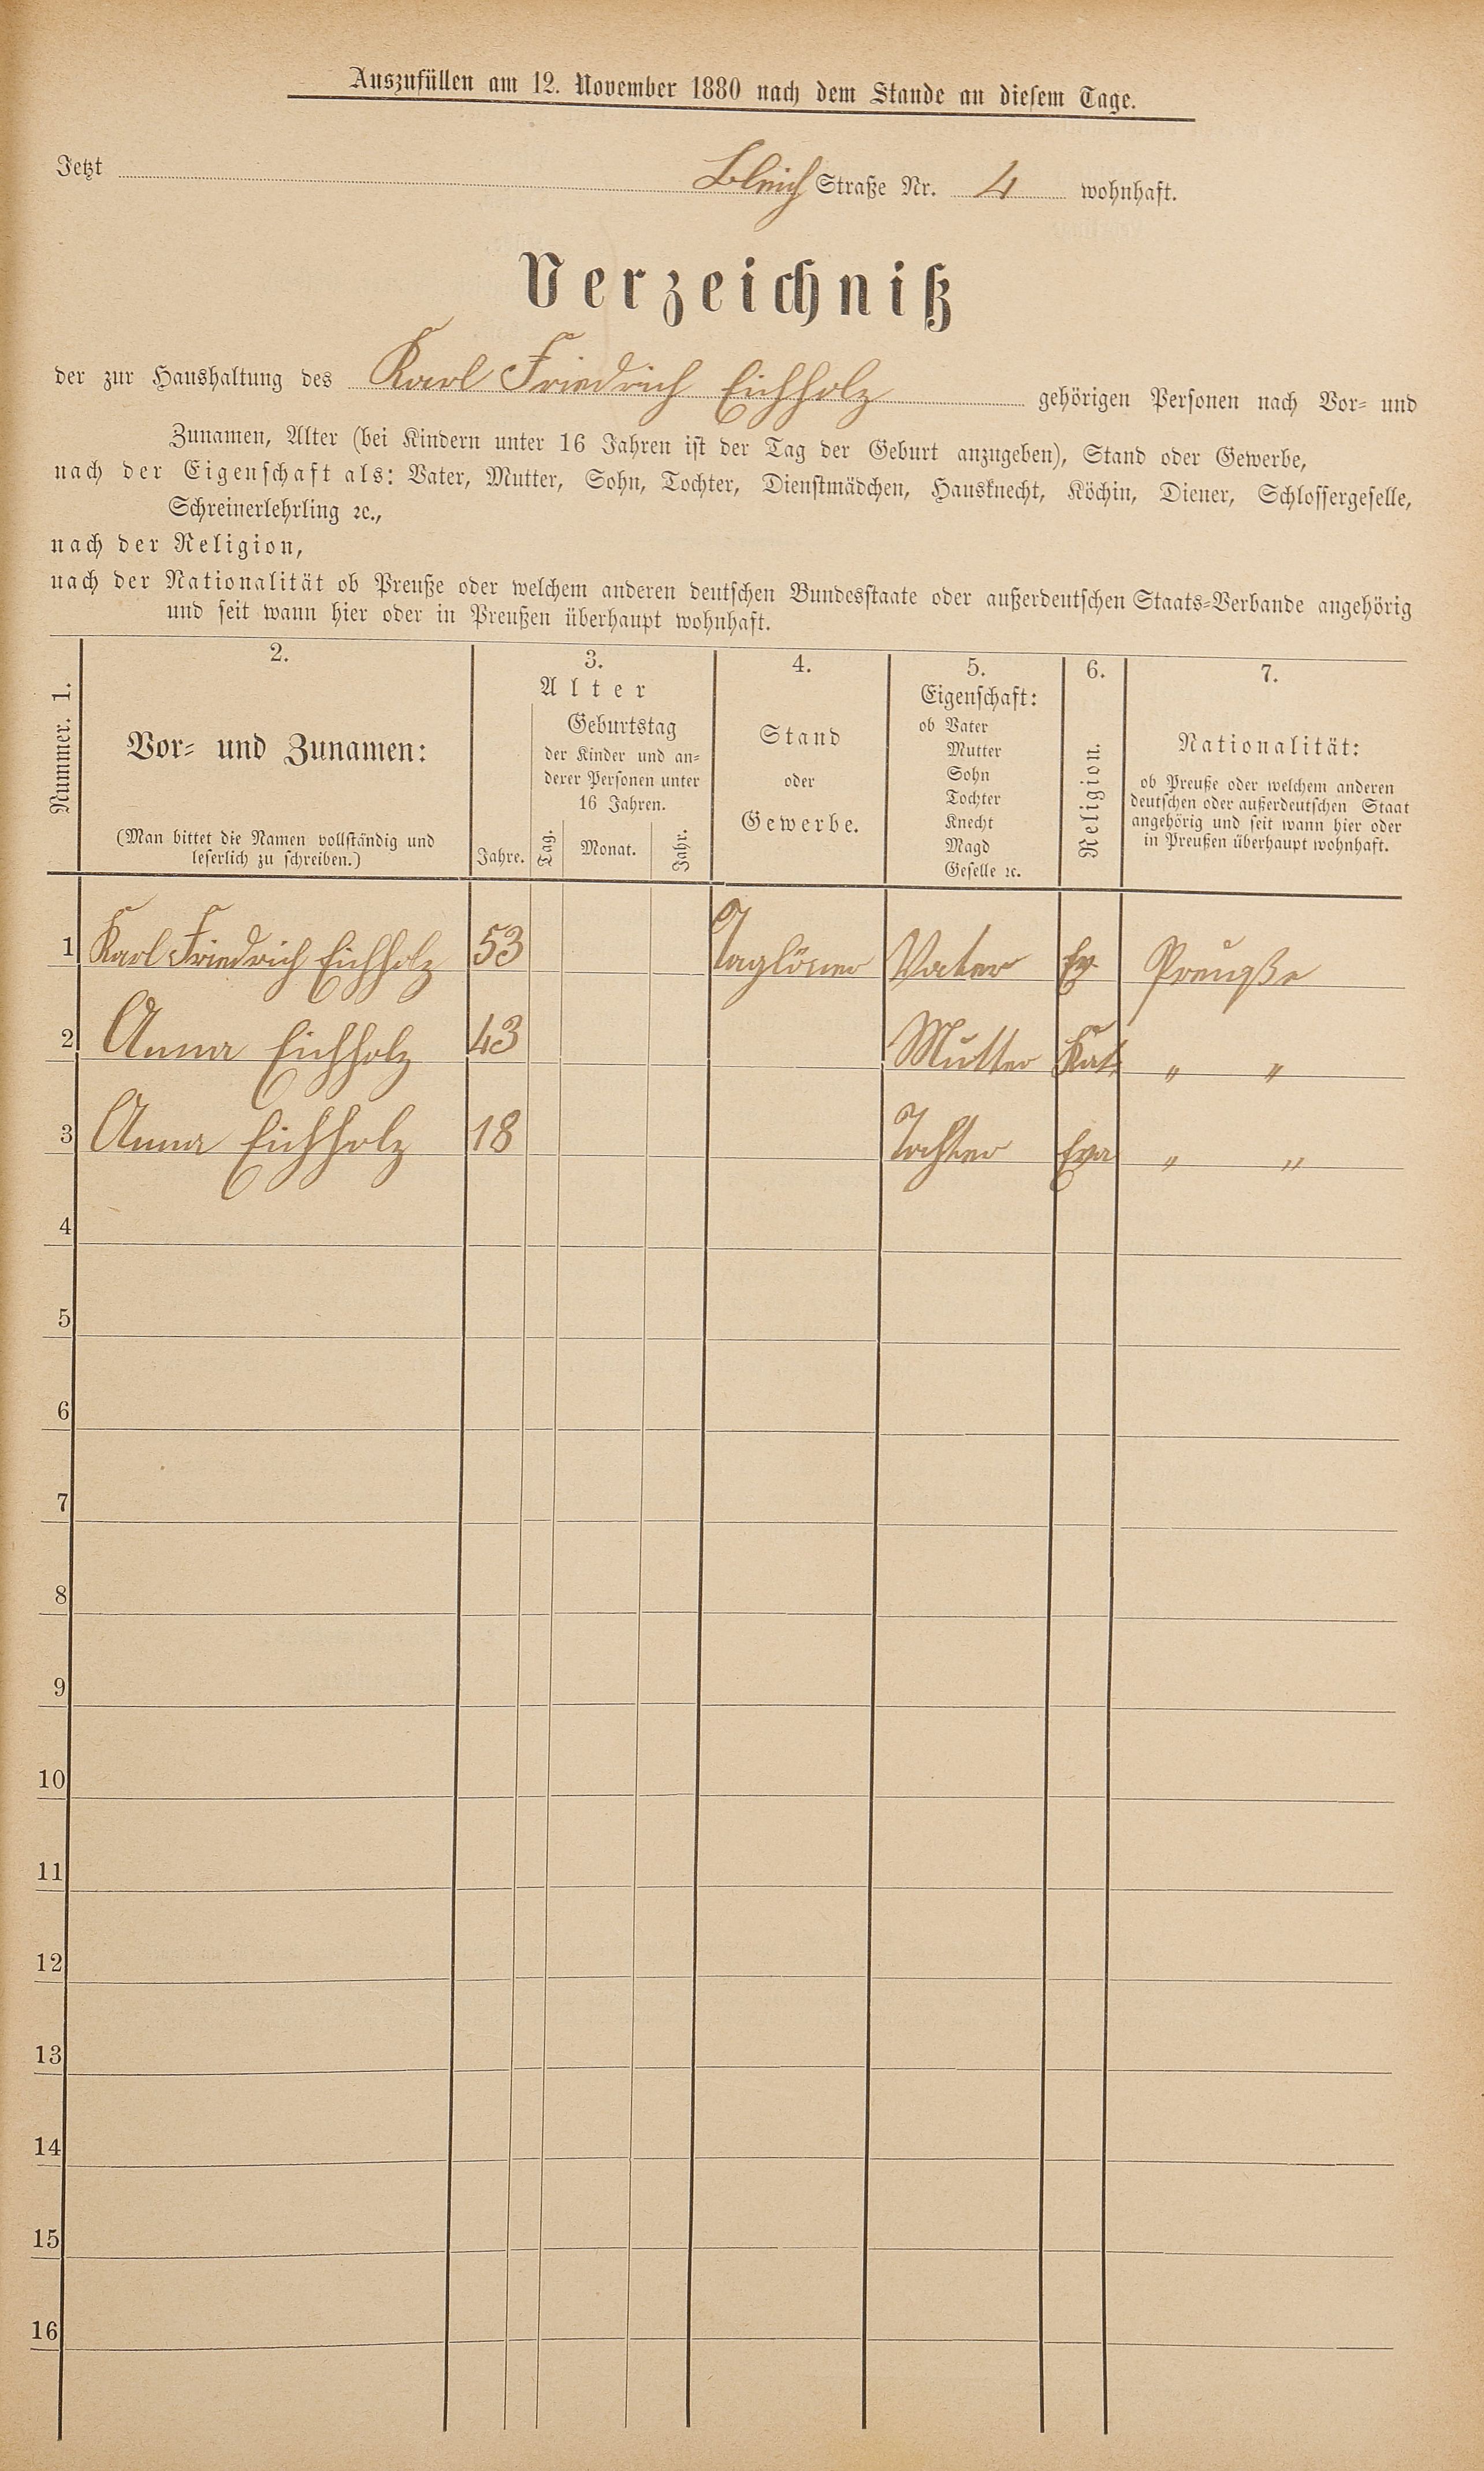 Auszufüllen am 12. November 1880 nach dem Stande an diesem Tage.
Jetzt Bleich Straße Nr. 4 wohnhaft.
Verzeichniß
der zur Haushaltung des Karl Friedrich Eichholz gehörigen Personen nach Vor- und
Zunamen, Alter (bei Kindern unter 16 Jahren ist der Tag der Geburt anzugeben), Stand oder Gewerbe,
nach der Eigenschaft als: Vater, Mutter, Sohn, Tochter, Dienstmädchen, Hausknecht, Köchin, Diener, Schlossergeselle,
Schreinerlehrling ꝛc.,
nach der Religion,
nach der Nationalität ob Preuße oder welchem anderen deutschen Bundesstaate oder außerdeutschen Staats-Verbande angehörig
und seit wann hier oder in Preußen überhaupt wohnhaft.
Nummer. 1.
2.
Vor- und Zunamen:
(Man bittet die Namen vollständig und
leserlich zu schreiben.)
3.
Alter
Jahre.
Geburtstag
der Kinder und an-
derer Personen unter
16 Jahren.
Tag. Monat. Jahr.
4.
Stand
oder
Gewerbe.
5.
Eigenschaft:
ob Vater
Mutter
Sohn
Tochter
Knecht
Magd
Geselle ꝛc.
6.
Religion.
7.
Nationalität:
ob Preuße oder welchem anderen
deutschen oder außerdeutschen Staat
angehörig und seit wann hier oder
in Preußen überhaupt wohnhaft.
1 Karl Friedrich Eichholz 53 Taglöner Vater Ev Preuße
2 Anna Eichholz 43 Mutter Kat. " "
3 Anna Eichholz 18 Tochter Eva " "
4
5
6
7
8
9
10
11
12
13
14
15
16